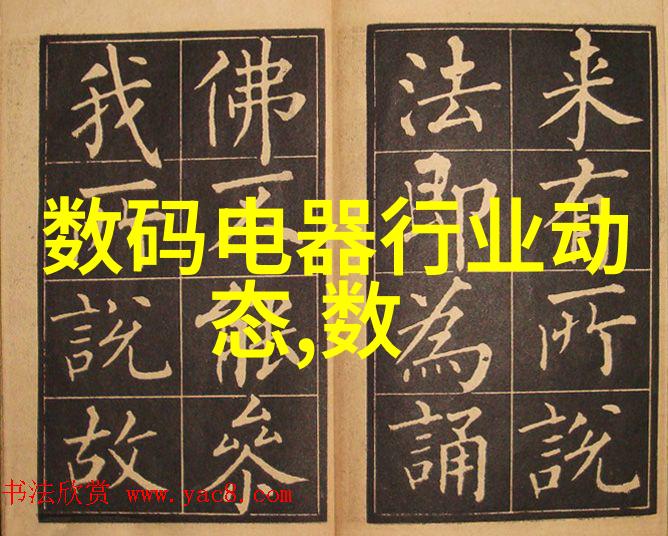 来有所說
法即為誦
佛不能叅
我所說故
数码电器行业动
态,数
书法欣赏 www.yac8.com